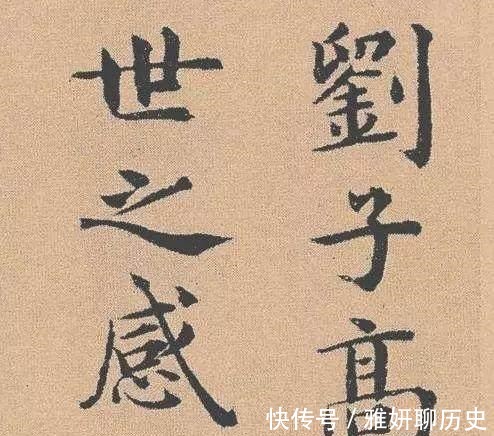 劉子高
世之感
快传号/雅妍聊历史